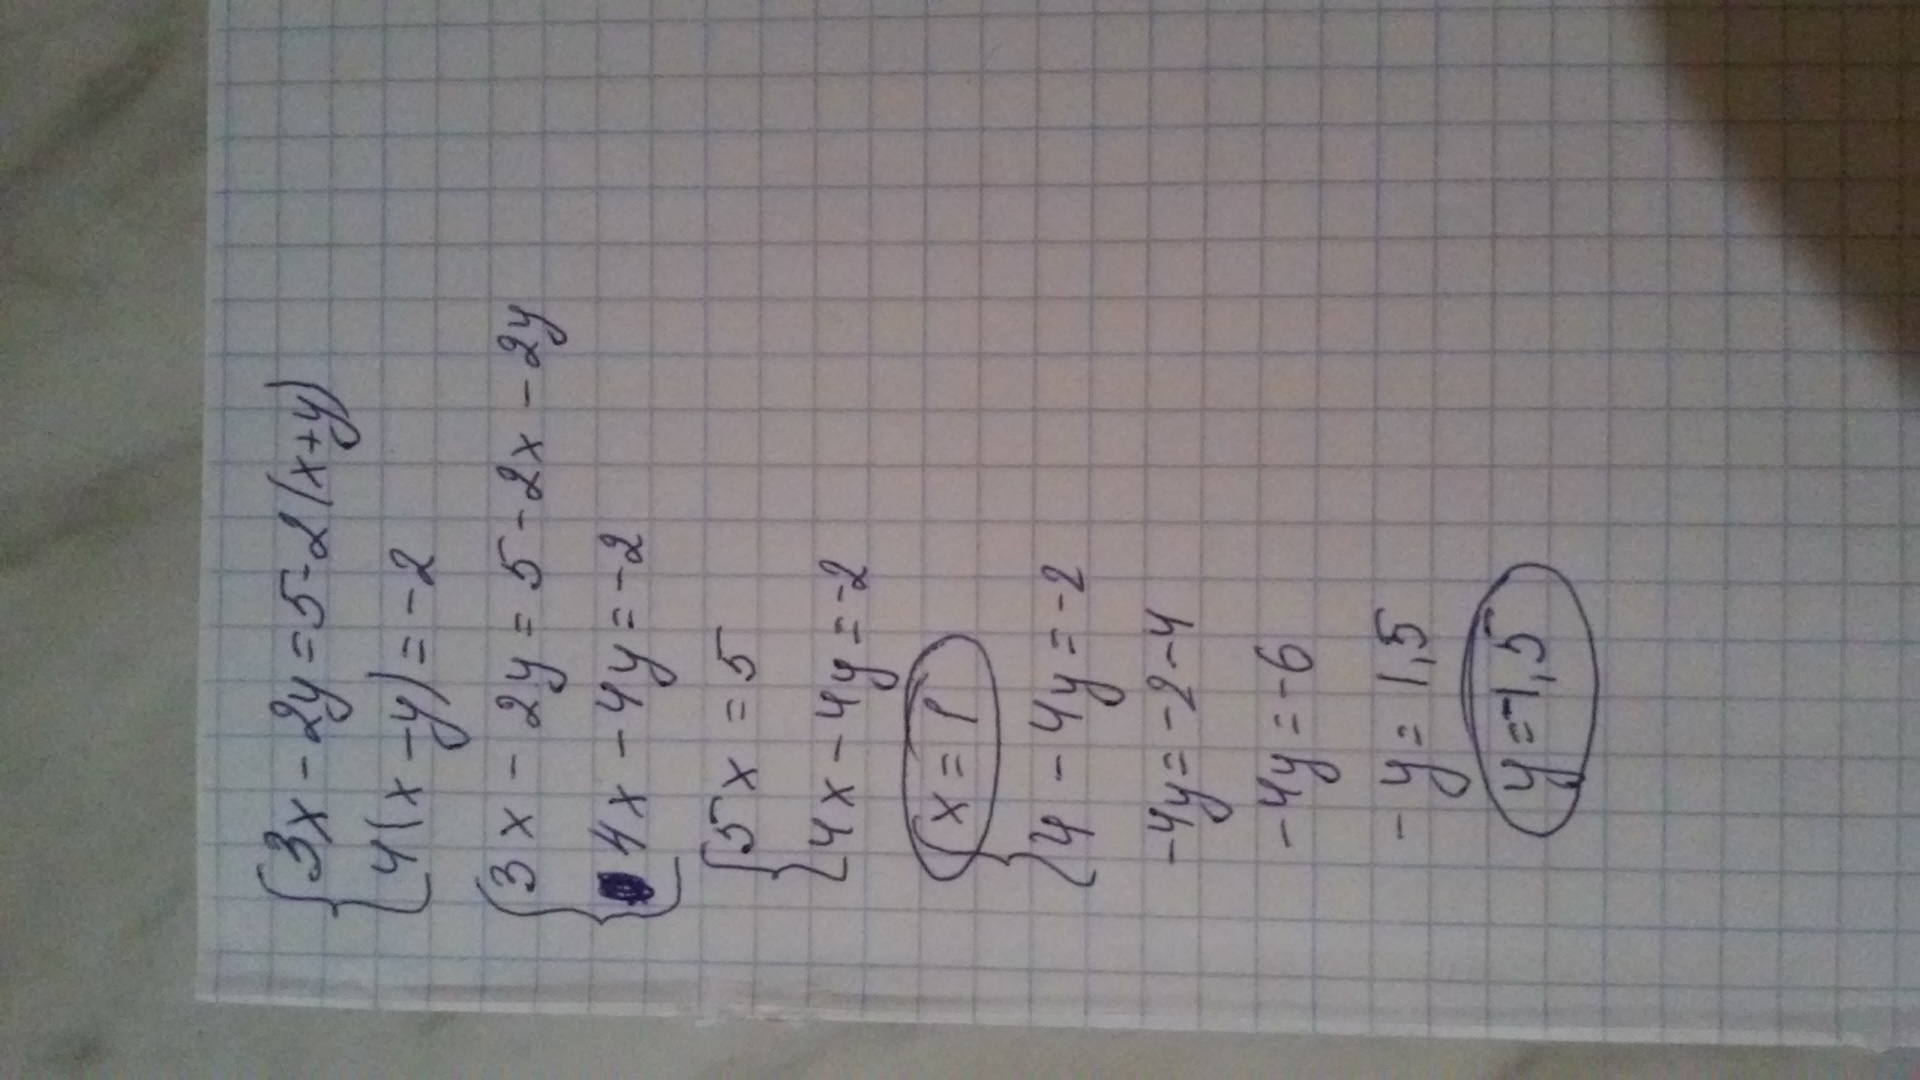 3x - 2y = 5 - 2(x+y)
4(x - y) = -2
3x - 2y = 5 - 2x - 2y
4x - 4y = -2
5x = 5
4x - 4y = -2
x = 1
4 - 4y = -2
-4y = -2 - 4
-4y = -6
-y = 1,5
y = -1,5